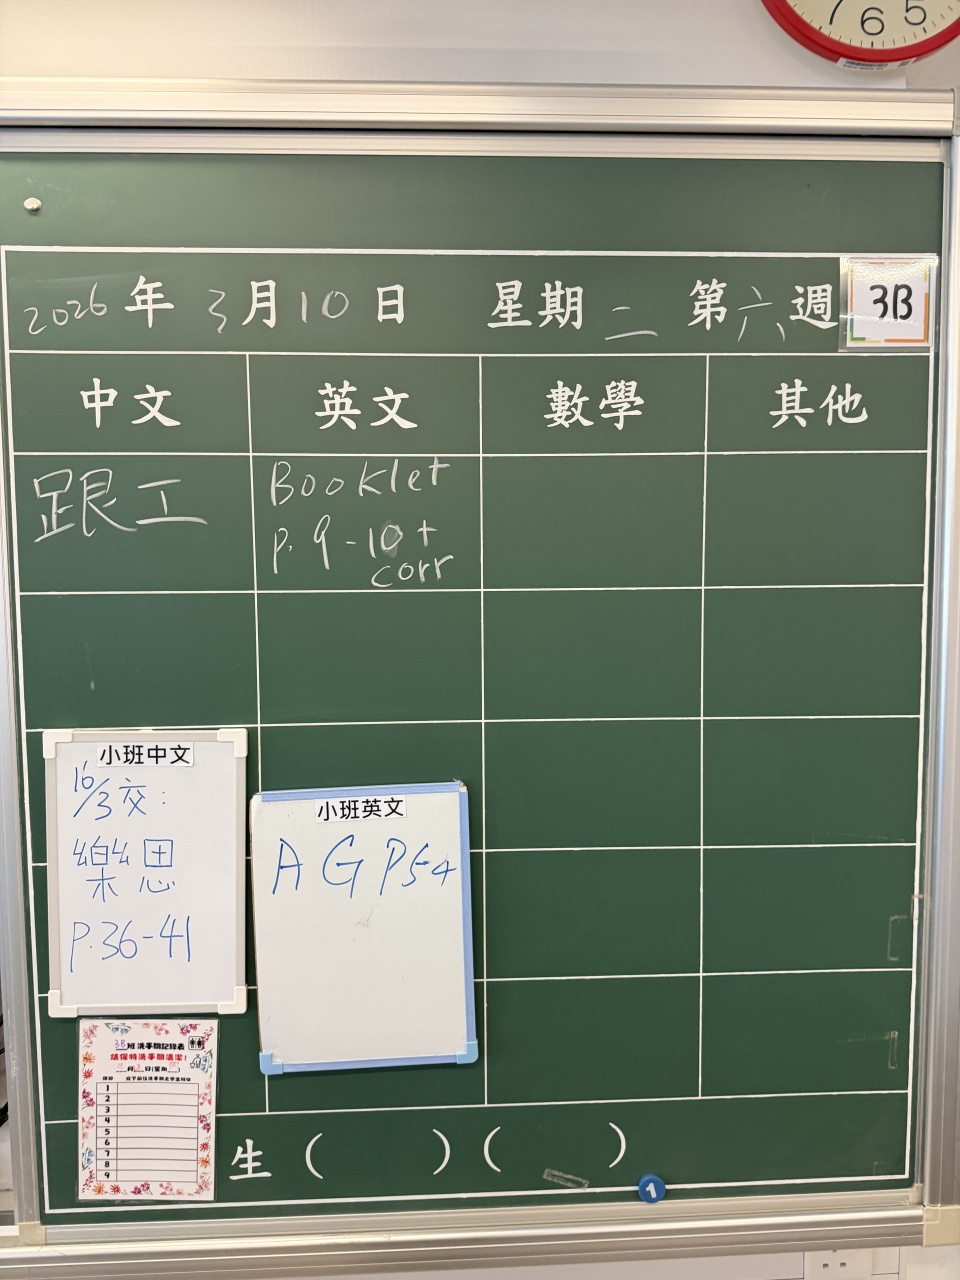 7 6 5
2026年 3月10日 星期二 第六週 3B
中文 英文 數學 其他
跟工
Booklet
p. 9-10 +
corr
小班中文
16/3交:
樂思
P.36-41
小班英文
AGP54
3B班洗手間記錄表
請保持洗手間清潔!
1
2
3
4
5
6
7
8
9
生 ( ) ( )
1